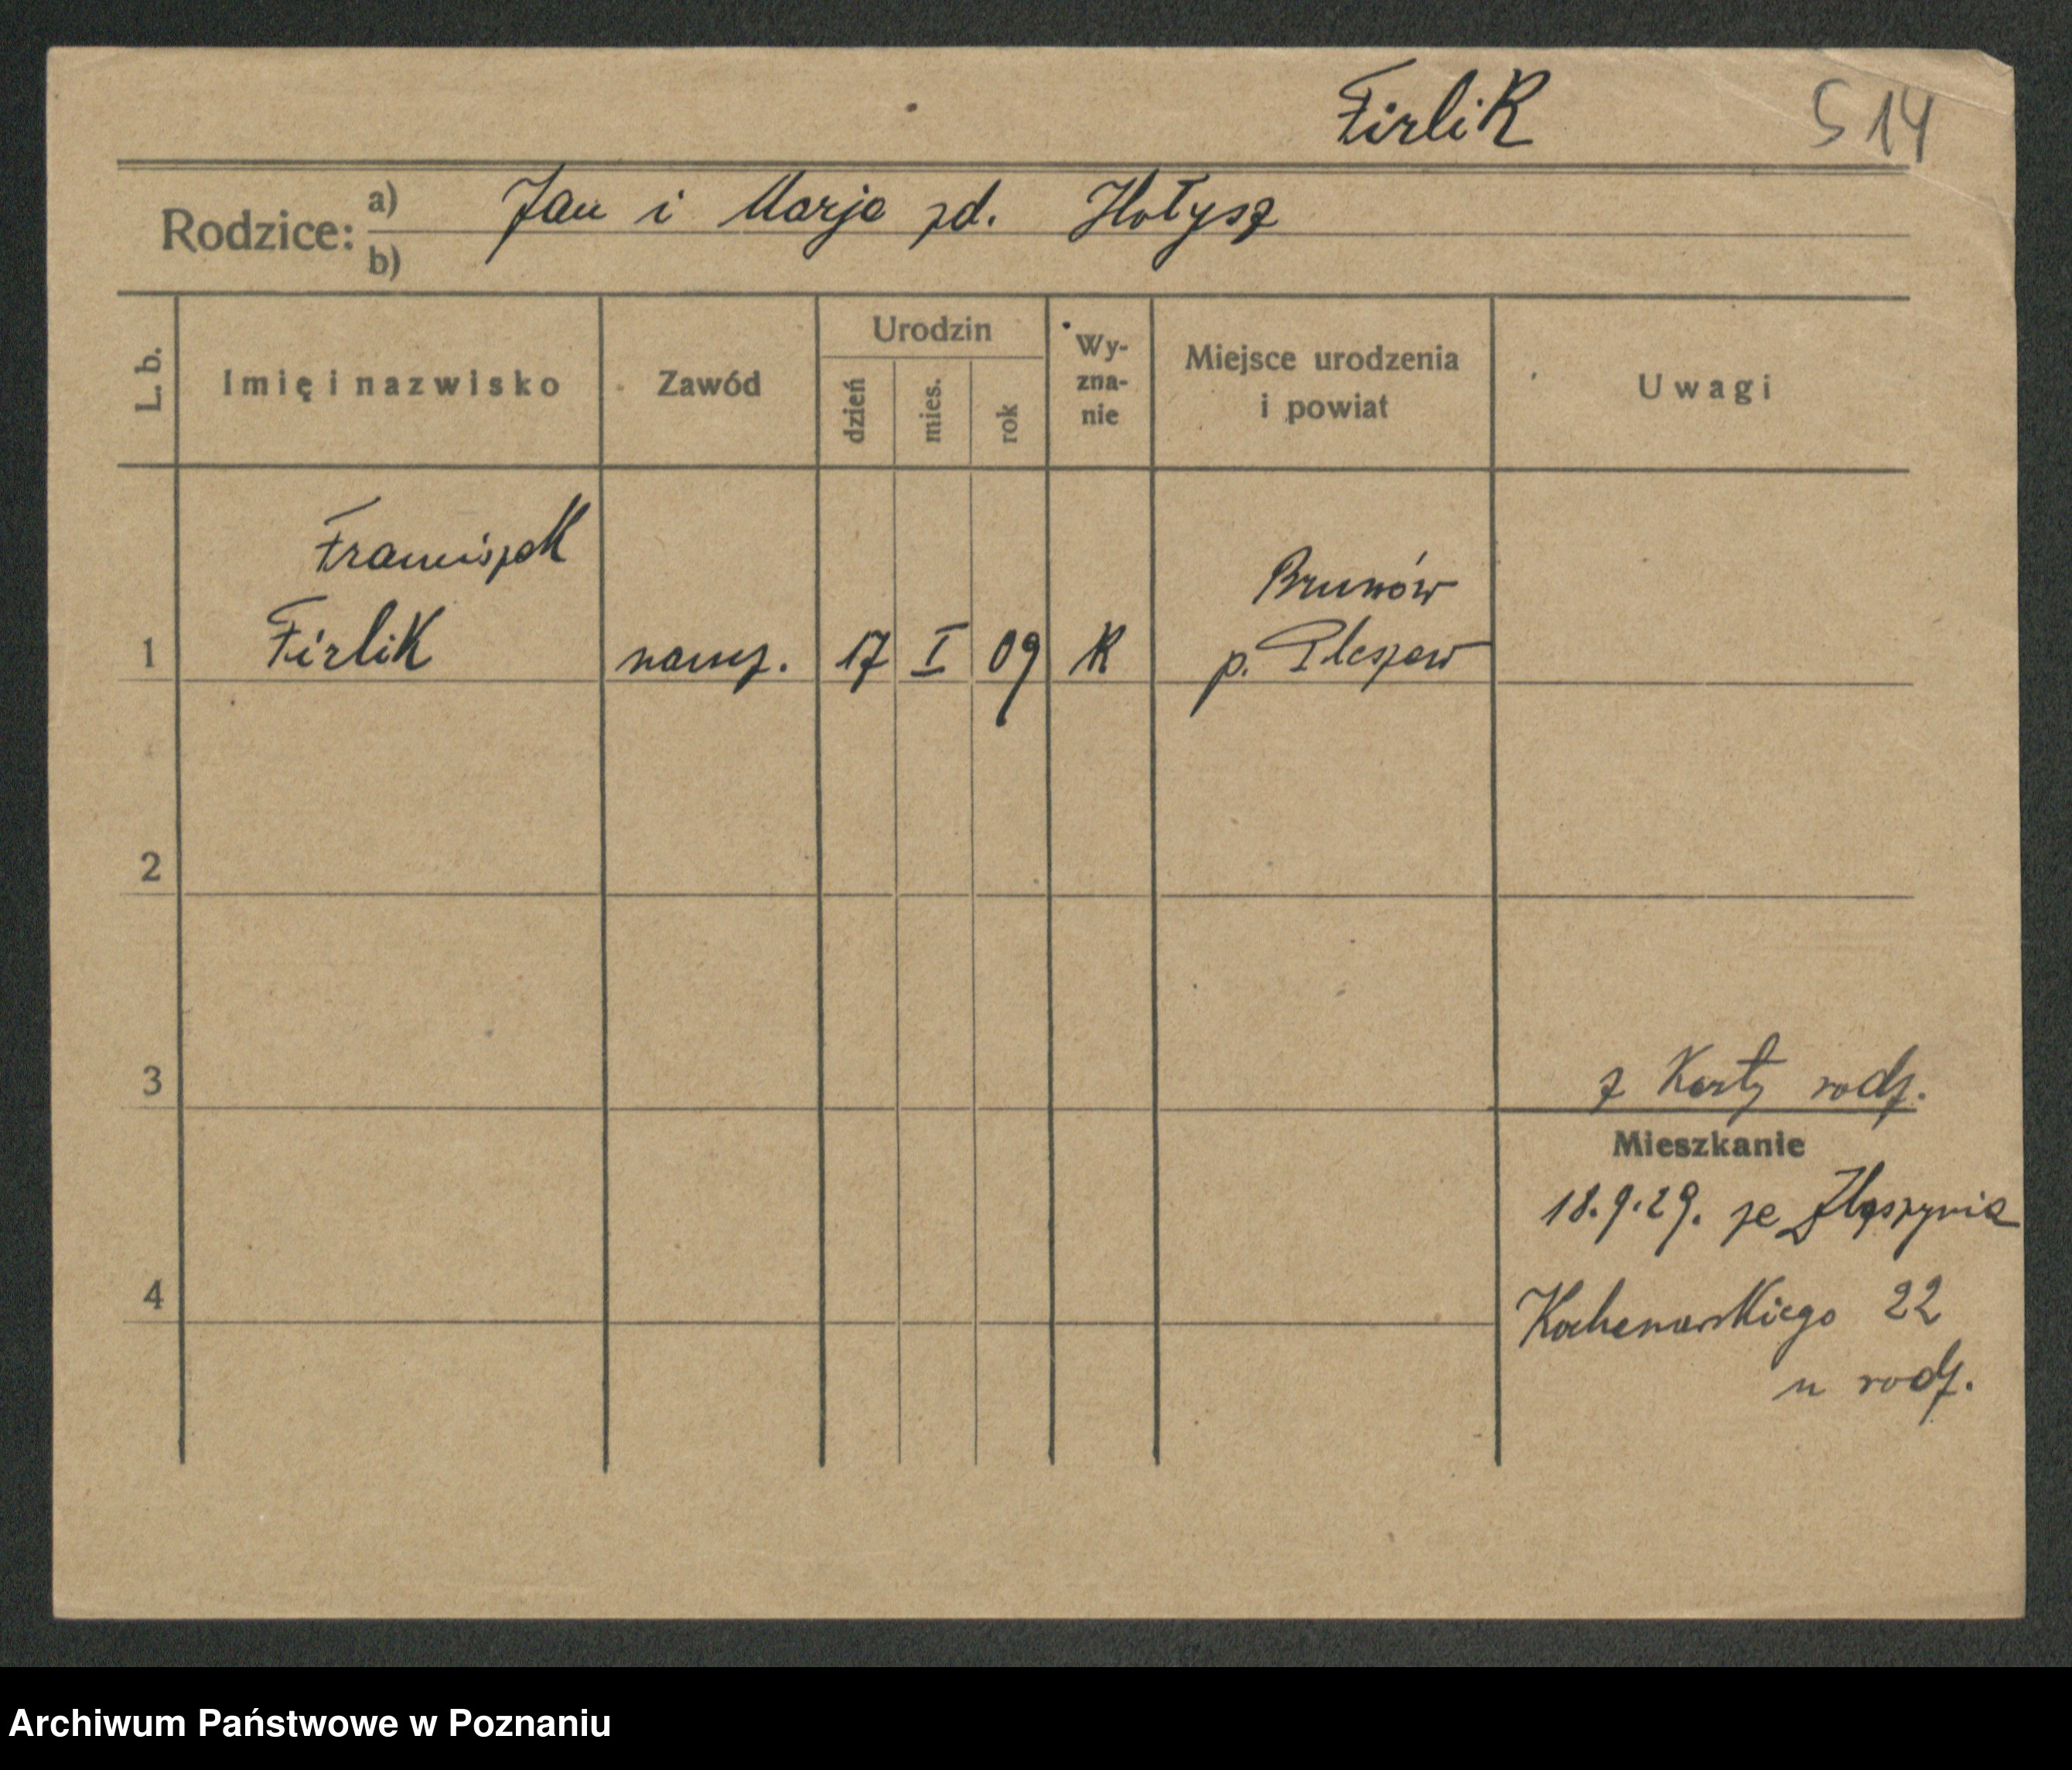 Firlik
S 14
Rodzice: a) Jan i Marja zd. Hołysz
b)
L. b. Imię i nazwisko Zawód Urodzin dzień mies. rok Wyznanie Miejsce urodzenia i powiat Uwagi
Franciszek Brunów
1 Firlik naucz. 17 I 09 K p. Pleszew
2
3 z Karty rodz.
Mieszkanie
18.9.29. ze
4 Kochanowskiego 22
u rodz.
Archiwum Państwowe w Poznaniu